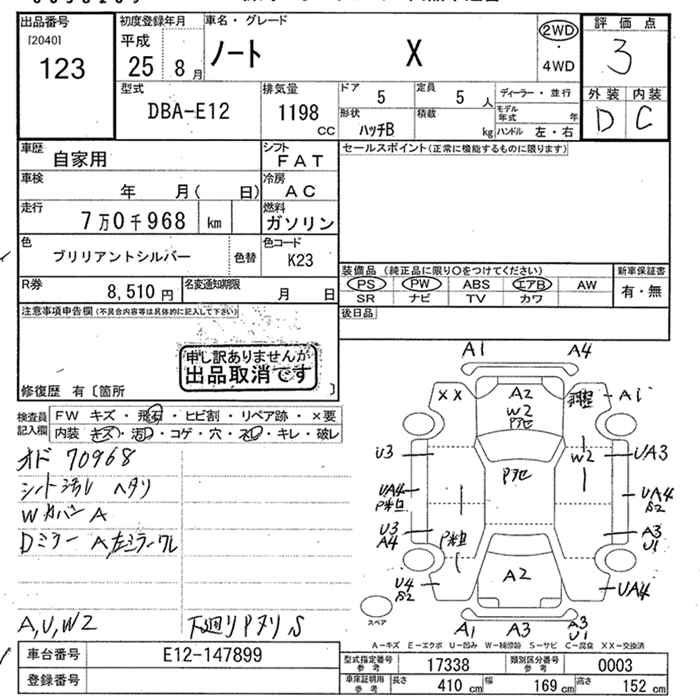 出品番号
[2040]
123
初度登録年月
平成
25 8月
車名・グレード
ノート X
2WD
・
4WD
評価点
3
外装 内装
D C
型式
DBA-E12
排気量
1198
CC
ドア 5
定員 5 人
形状 ハッチB
積載 kg
ディーラー・並行
モデル年式 年
ハンドル 左・右
車歴
自家用
シフト
FAT
車検
年 月( 日)
冷房
AC
走行
7万0千968 km
燃料
ガソリン
色
ブリリアントシルバー
色替
色コード
K23
R券
8,510円
名変通知期限
月 日
セールスポイント(正常に機能するものに限ります)
装備品(純正品に限り○をつけてください)
PS PW ABS エアB AW
SR ナビ TV カワ
新車保証書
有・無
後日品
注意事項申告欄(不具合内容等は具体的に記入して下さい)
申し訳ありませんが
出品取消です
修復歴 有〔箇所 〕
検査員
記入欄
FW キズ・飛石・ヒビ割・リペア跡・×要
内装 キズ・汚れ・コゲ・穴・スレ・キレ・破レ
オド 70968
シート汚レ ヘタリ
Wカバー A
Dミラー A 左ミラーワレ
A,U,W2
下廻りPヌリ S
A1 A4
XX
A2
W2
A1
U3
W2
UA3
UA4
UA4
S2
U3
A4
A3
U1
U4
S2
A2
UA4
A1 A3 A3
U1
スペア
A−キズ E−エクボ U−凹み W−補修跡 S−サビ C−腐食 XX−交換済
車台番号
E12-147899
登録番号
型式指定番号
参考
17338
類別区分番号
参考
0003
車庫証明用
参考
長さ 410 cm 幅 169 cm 高さ 152 cm